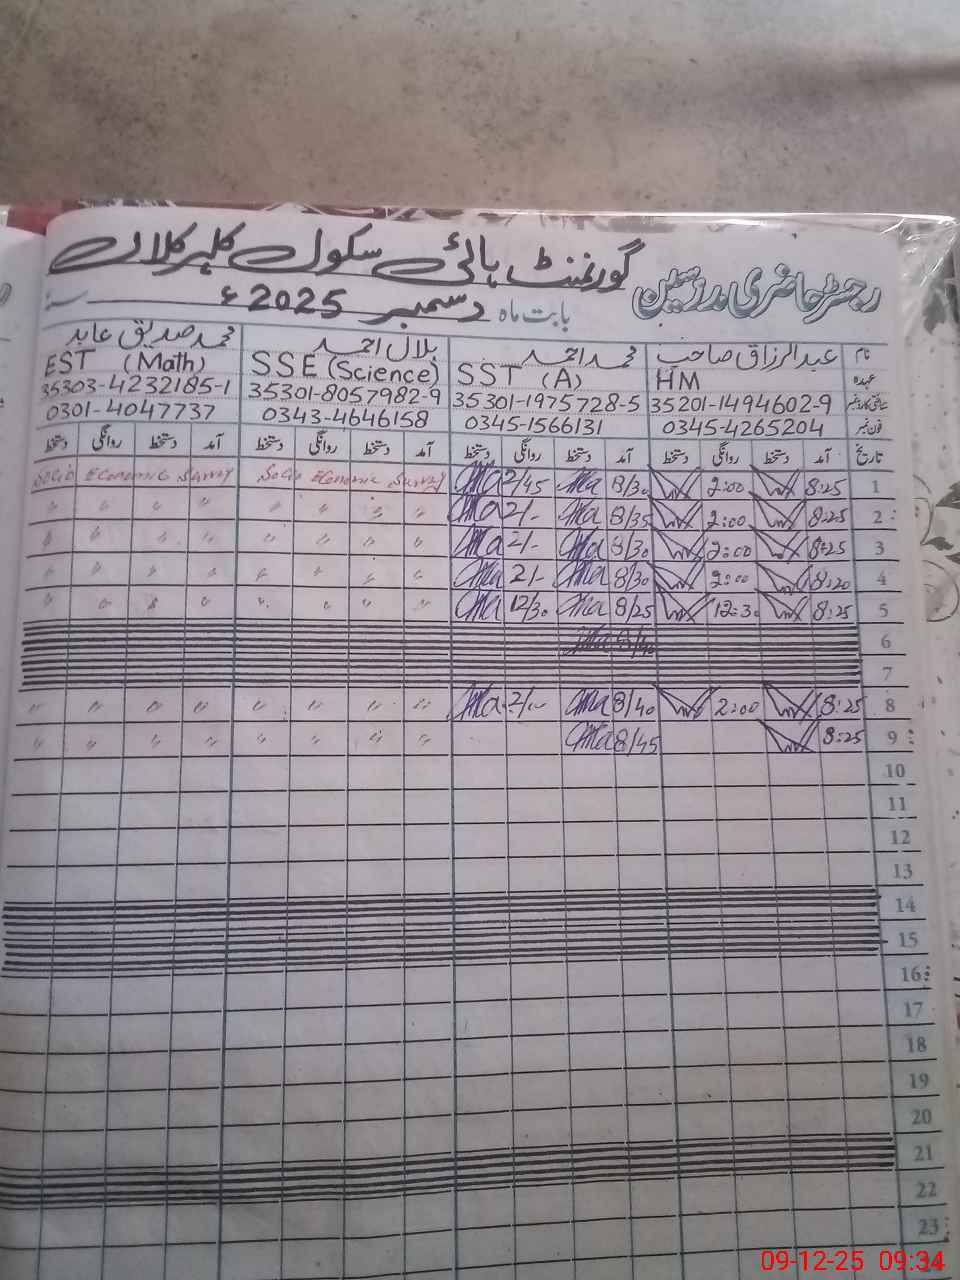 گورنمنٹ ہائی سکول کلیر کلاں
رجسٹر حاضری مدرسین
بابت ماہ دسمبر 2025ء
نام عبدالرزاق صاحب محمد احمد بلال احمد محمد صدیق عابد
عہدہ HM SST (A) SSE (Science) EST (Math)
شناختی کارڈ نمبر 35201-1494602-9 35301-1975728-5 35301-8057982-9 35303-4232185-1
فون نمبر 0345-4265204 0345-1566131 0343-4646158 0301-4047737
تاریخ آمد دستخط روانگی دستخط آمد دستخط روانگی دستخط آمد دستخط روانگی دستخط آمد دستخط روانگی دستخط
1 8:25 2:00 8/30 2/45 Socio Economic Survey Socio Economic Survey
2 8:25 2:00 8/35 2/- " " " " " " " "
3 8:25 2:00 8/30 2/- " " " " " " " "
4 8:20 2:00 8/30 2/- " " " " " " " "
5 8:25 12:30 8/25 12/30 " " " " " " " "
6 8/40
7
8 8:25 2:00 8/40 2/- " " " " " " " "
9 8:25 8/45 " " " " " " " "
10
11
12
13
14
15
16
17
18
19
20
21
22
23
09-12-25 09:34